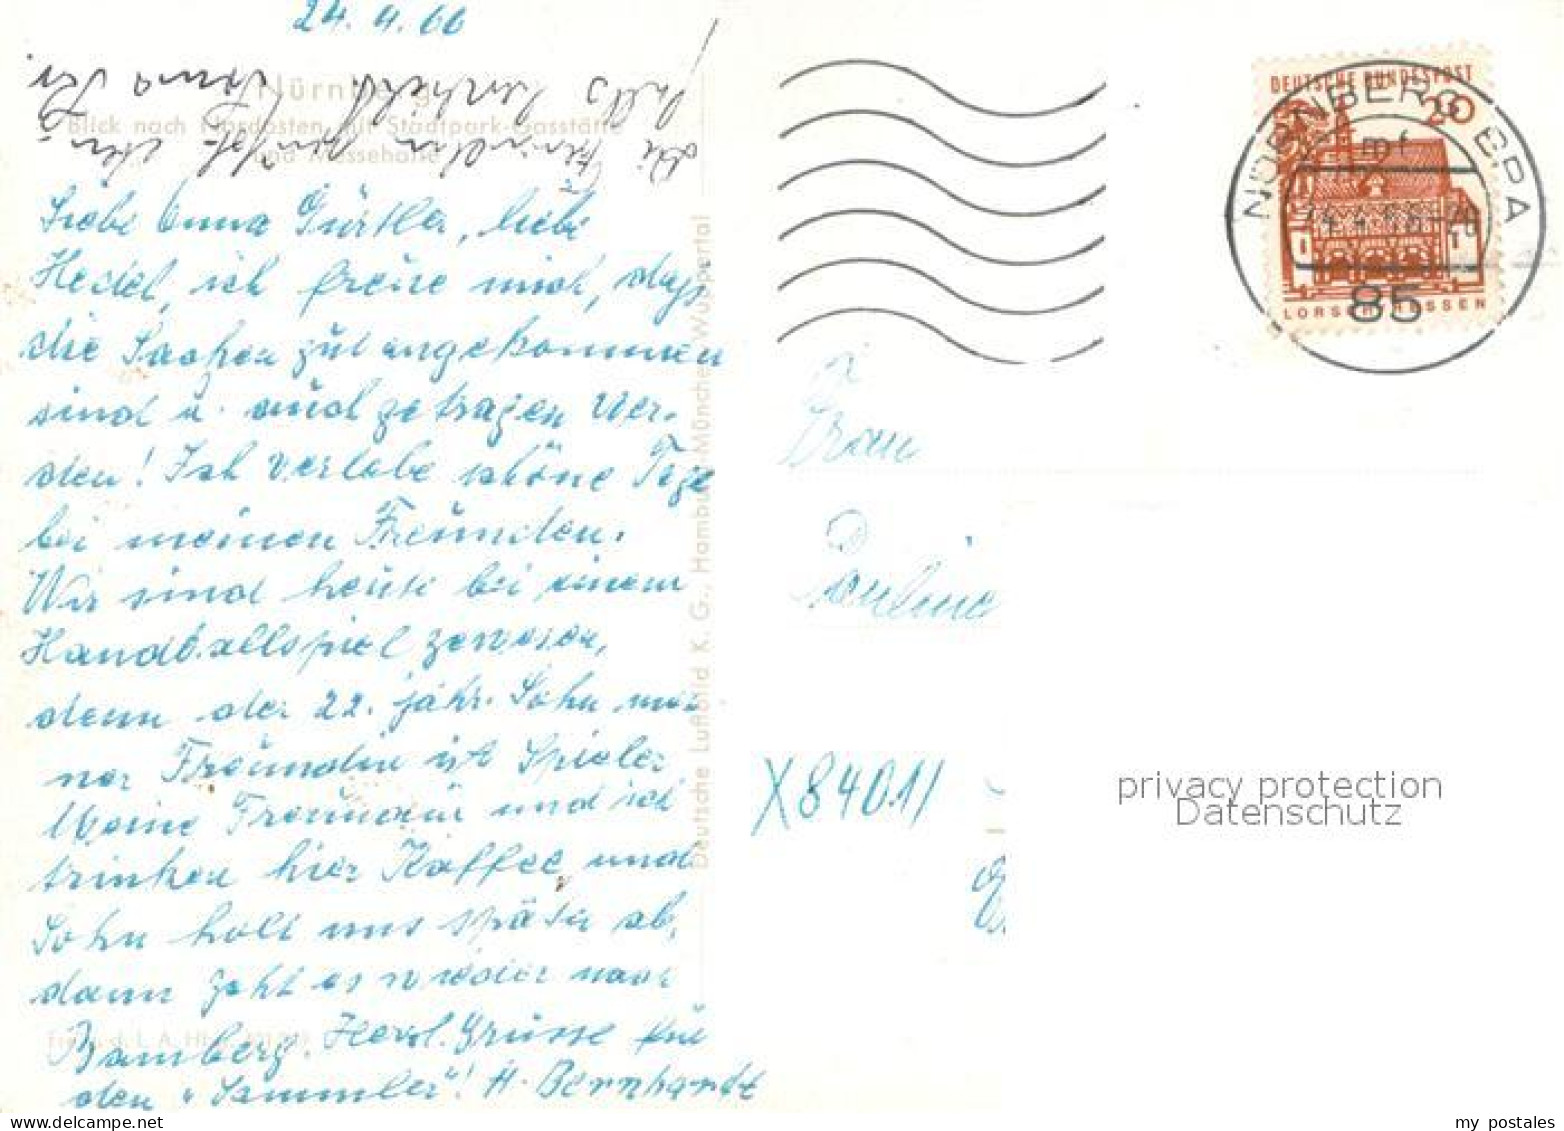 24. 4. 66
Nürnberg
Blick nach Nordosten mit Stadtpark-Gaststätte
und Messehalle
Liebe Anna Gürtler, liebe
Hedel, ich freue mich, dass
die Sachen gut angekommen
sind u. auch getragen wer-
den! Ich verlebe schöne Tage
bei meinen Freunden.
Wir sind heute bei einem
Handballspiel gewesen,
denn der 22. jähr. Sohn mei-
ner Freundin ist Spieler.
Meine Freundin und ich
trinken hier Kaffee und
Sohn holt uns später ab,
dann geht es wieder nach
Bamberg. Herzl. Grüsse für
den "Sammler"! H. Bernhardt
die Freundin grüßt eben-
falls herzlich
Deutsche Luftbild K. G., Hamburg-München-Wuppertal
DEUTSCHE BUNDESPOST
20
LORSCH HESSEN
NÜRNBERG BPA
mf
24.4.66-20
85
Frau
Pauline
X84011
privacy protection
Datenschutz
my postales